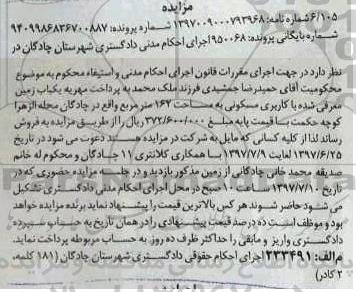 مزایده
۶/۱۰۵ شماره نامه: ۱۳۹۷۰۰۹۰۰۰۷۹۳۹۶۸ شماره پرونده: ۹۴۰۹۹۸۶۸۳۶۷۰۰۸۸۷
شماره بایگانی پرونده: ۹۵۰۰۶۸ اجرای احکام مدنی دادگستری شهرستان چادگان در
نظر دارد در جهت اجرای مقررات قانون اجرای احکام مدنی و استیفاء محکوم به موضوع
محکومیت آقای حمیدرضا جمشیدی فرزند ملک محمد به پرداخت مهریه یکباب زمین
معرفی شده با کاربری مسکونی به مساحت ۱۶۲ متر مربع واقع در چادگان محله الزهرا
کوچه حکمت با قیمت پایه مبلغ ۳۷۲/۶۰۰/۰۰۰ ریال را از طریق مزایده به فروش
رساند لذا از کلیه کسانی که مایل به شرکت در مزایده هستند دعوت می شود در تاریخ
۱۳۹۷/۶/۲۵ لغایت ۱۳۹۷/۷/۹ با همکاری کلانتری ۱۱ چادگان و محکوم له خانم
صدیقه محمد خانی چادگانی از زمین مذکور بازدید و در جلسه مزایده حضوری که در
تاریخ ۱۳۹۷/۷/۱۰ ساعت ۱۰ صبح در محل اجرای احکام مدنی دادگستری تشکیل
می شود حاضر شوند هر کس بالاترین قیمت را پیشنهاد نماید برنده مزایده خواهد
بود و موظف است ده درصد قیمت پیشنهادی را در همان تاریخ به حساب سپرده
دادگستری واریز و مابقی را حداکثر ظرف ده روز به حساب مربوطه پرداخت نماید.
م الف: ۲۳۳۴۹۱ اجرای احکام حقوقی دادگستری شهرستان چادگان (۱۸۱ کلمه،
۲ کادر)